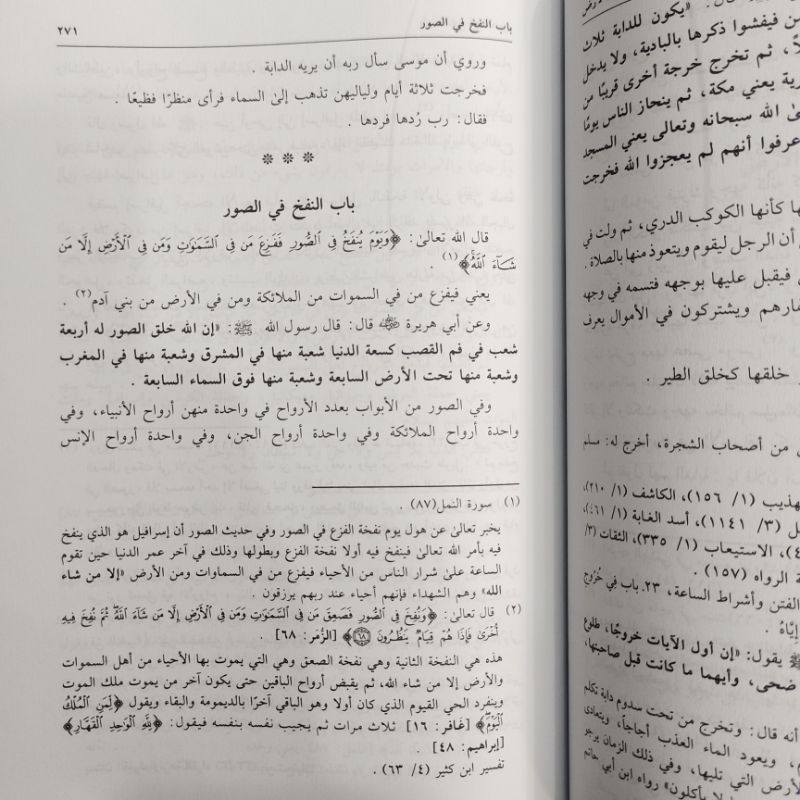 باب النفخ في الصور
٢٧١
وروي أن موسى سأل ربه أن يريه الدابة .
فخرجت ثلاثة أيام ولياليهن تذهب إلىٰ السماء فرأى منظرًا فظيعًا .
فقال: رب رُدها فردها .
***
باب النفخ في الصور
قال الله تعالىٰ: ﴿وَيَوْمَ يُنفَخُ فِى ٱلصُّورِ فَفَزِعَ مَن فِى ٱلسَّمَٰوَٰتِ وَمَن فِى ٱلْأَرْضِ إِلَّا مَن
شَآءَ ٱللَّهُ﴾(١) .
يعني فيفزع من في السموات من الملائكة ومن في الأرض من بني آدم(٢) .
وعن أبي هريرة ﷺ قال: قال رسول الله ﷺ: «إن الله خلق الصور له أربعة
شعب في فم القصب كسعة الدنيا شعبة منها في المشرق وشعبة منها في المغرب
وشعبة منها تحت الأرض السابعة وشعبة منها فوق السماء السابعة .
وفي الصور من الأبواب بعدد الأرواح في واحدة منهن أرواح الأنبياء، وفي
واحدة أرواح الملائكة وفي واحدة أرواح الجن، وفي واحدة أرواح الإنس
(١) سورة النمل(٨٧) .
يخبر تعالىٰ عن هول يوم نفخة الفزع في الصور وفي حديث الصور أن إسرافيل هو الذي ينفخ
فيه بأمر الله تعالىٰ فينفخ فيه أولا نفخة الفزع وبطولها وذلك في آخر عمر الدنيا حين تقوم
الساعة علىٰ شرار الناس من الأحياء فيفزع من في السماوات ومن الأرض «إلا من شاء
الله» وهم الشهداء فإنهم أحياء عند ربهم يرزقون .
(٢) قال تعالىٰ: ﴿وَنُفِخَ فِى ٱلصُّورِ فَصَعِقَ مَن فِى ٱلسَّمَٰوَٰتِ وَمَن فِى ٱلْأَرْضِ إِلَّا مَن شَآءَ ٱللَّهُ ثُمَّ نُفِخَ فِيهِ
أُخْرَىٰ فَإِذَا هُمْ قِيَامٌ يَنظُرُونَ ٦٨﴾ [الزُّمَر: ٦٨] .
هذه هي النفخة الثانية وهي نفخة الصعق وهي التي يموت بها الأحياء من أهل السموات
والأرض إلا من شاء الله، ثم يقبض أرواح الباقين حتى يكون آخر من يموت ملك الموت
وينفرد الحي القيوم الذي كان أولا وهو الباقي آخرًا بالديمومة والبقاء ويقول ﴿لِّمَنِ ٱلْمُلْكُ
ٱلْيَوْمَ﴾ [غَافر: ١٦] ثلاث مرات ثم يجيب نفسه بنفسه فيقول: ﴿لِلَّهِ ٱلْوَٰحِدِ ٱلْقَهَّارِ﴾
[إبراهيم: ٤٨] .
تفسير ابن كثير (٤/ ٦٣) .
«يكون للدابة ثلاث
من فيفشوا ذكرها بالبادية، ولا يدخل
ثم تخرج خرجة أخرى قريبًا من
يعني مكة، ثم ينحاز الناس يومًا
الله سبحانه وتعالى يعني المسجد
عرفوا أنهم لم يعجزوا الله فخرجت
كأنها الكوكب الدري، ثم ولت في
أن الرجل ليقوم ويتعوذ منها بالصلاة .
فيقبل عليها بوجهه فتسمه في وجهه
ويشتركون في الأموال يعرف
خلقها كخلق الطير .
من أصحاب الشجرة، أخرج له: مسلم
(١/ ١٥٦)، الكاشف (١/ ٢١٠)،
(٣/ ١١٤١)، أسد الغابة (١/ ٤٦١)،
الاستيعاب (١/ ٣٣٥)، الثقات (٣/
الرواه (١٥٧) .
الفتن وأشراط الساعة، ٢٣. باب في خُرُوج
ﷺ يقول: «إن أول الآيات خروجًا، طلوع
ضحى، وأيهما ما كانت قبل صاحبتها،
أنه قال: وتخرج من تحت سدوم دابة تكلم
ويعود الماء العذب أجاجاً،
التي تليها، وفي ذلك الزمان يرجو
يأكلون» رواه ابن أبي حاتم